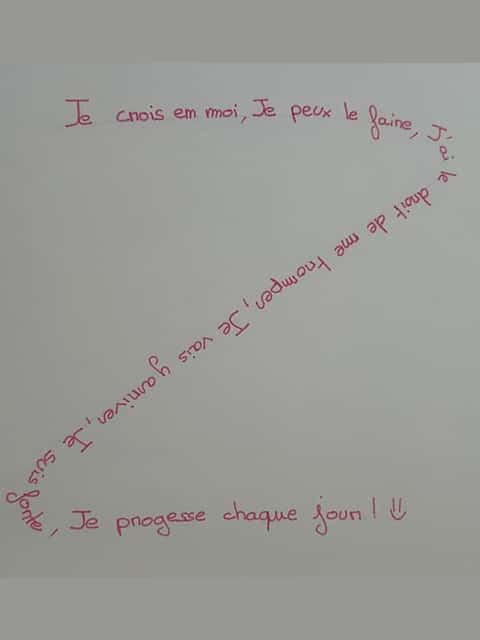 Je crois en moi, Je peux le faire, J'ai le droit de me tromper, Je vais y arriver, Je suis forte, Je progesse chaque jour ! =)